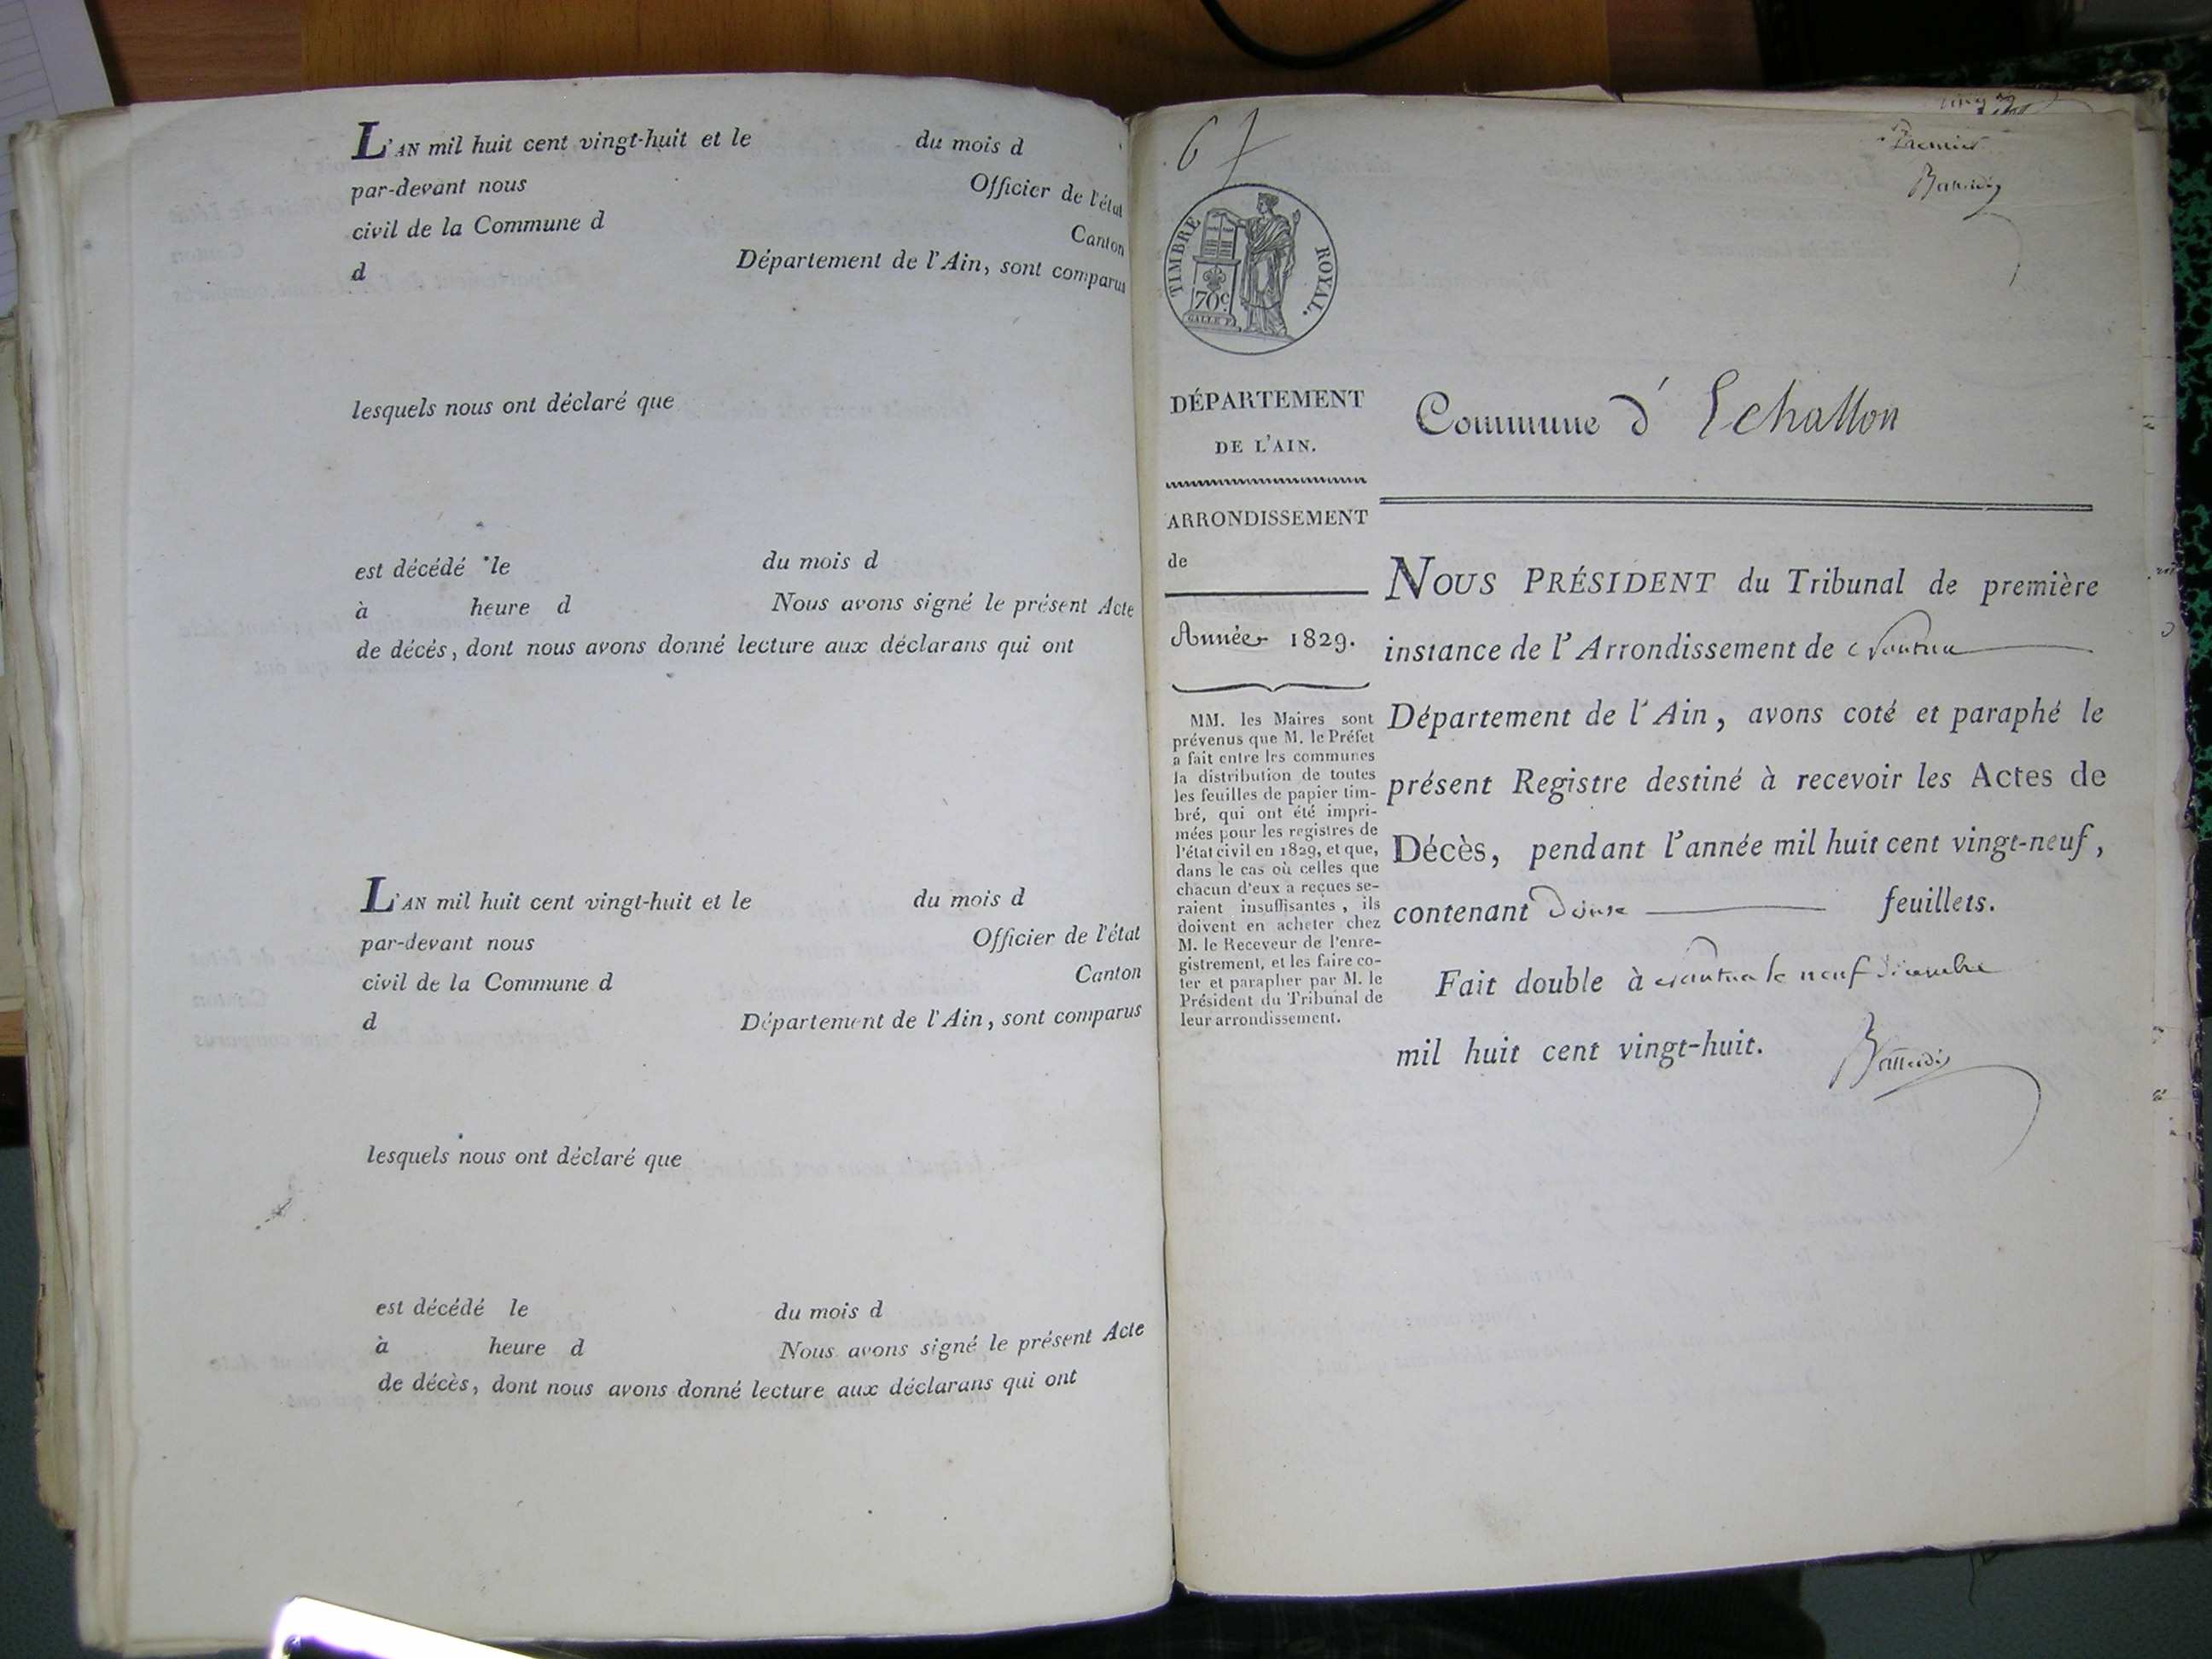 L'AN mil huit cent vingt-huit et le du mois d
par-devant nous Officier de l'état
civil de la Commune d Canton
d Département de l'Ain, sont comparus
lesquels nous ont déclaré que
est décédé le du mois d
à heure d Nous avons signé le présent Acte
de décés, dont nous avons donné lecture aux déclarans qui ont
L'AN mil huit cent vingt-huit et le du mois d
par-devant nous Officier de l'état
civil de la Commune d Canton
d Département de l'Ain, sont comparus
lesquels nous ont déclaré que
est décédé le du mois d
à heure d Nous avons signé le présent Acte
de décès, dont nous avons donné lecture aux déclarans qui ont
6
Premier
TIMBRE ROYAL.
70c
GALLE F.
DÉPARTEMENT
DE L'AIN.
ARRONDISSEMENT
de
Année 1829.
MM. les Maires sont
prévenus que M. le Préfet
a fait entre les communes
la distribution de toutes
les feuilles de papier tim-
bré, qui ont été impri-
mées pour les registres de
l'état civil en 1829, et que,
dans le cas où celles que
chacun d'eux a reçues se-
raient insuffisantes, ils
doivent en acheter chez
M. le Receveur de l'enre-
gistrement, et les faire co-
ter et parapher par M. le
Président du Tribunal de
leur arrondissement.
Commune d'Echallon
NOUS PRÉSIDENT du Tribunal de première
instance de l'Arrondissement de Nantua
Département de l'Ain, avons coté et paraphé le
présent Registre destiné à recevoir les Actes de
Décès, pendant l'année mil huit cent vingt-neuf,
contenant douze feuillets.
Fait double à Nantua le neuf décembre
mil huit cent vingt-huit.